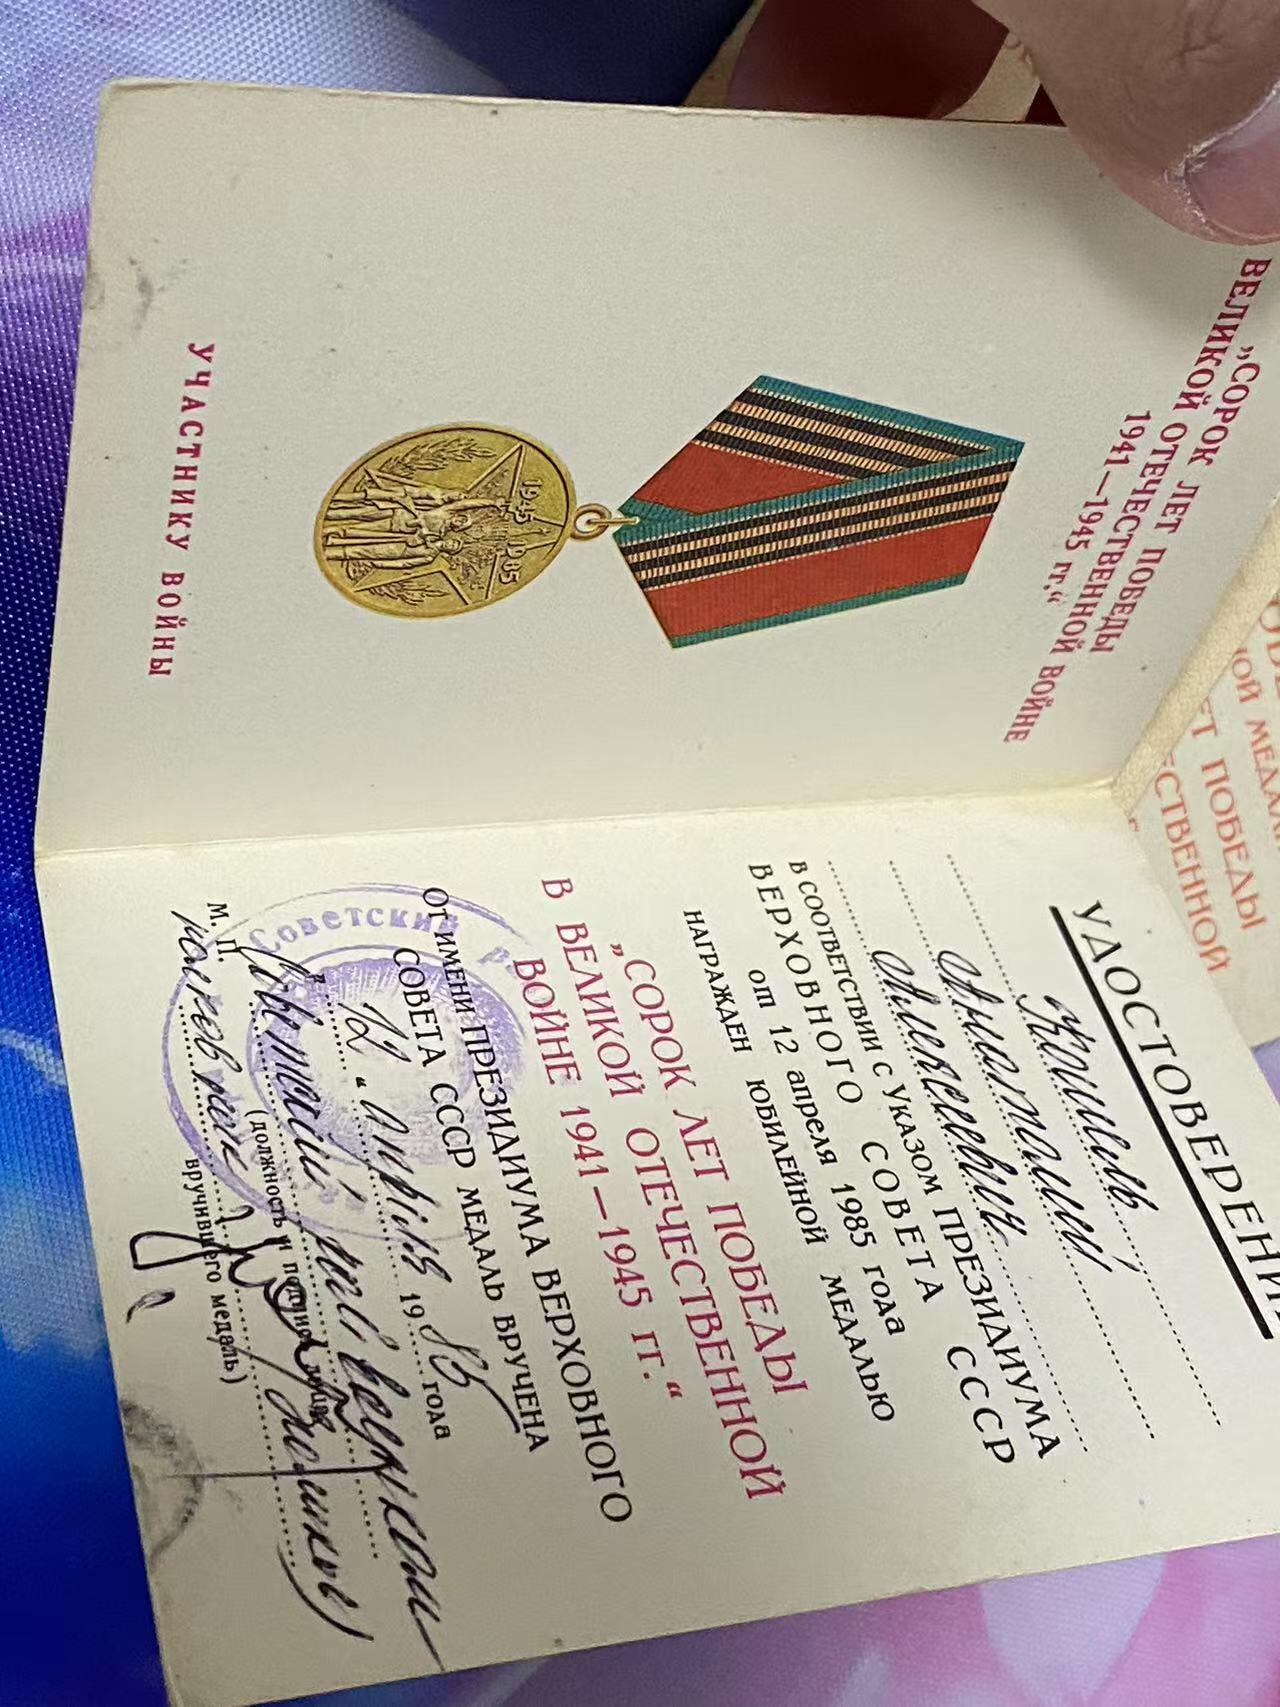 „СОРОК ЛЕТ ПОБЕДЫ
ВЕЛИКОЙ ОТЕЧЕСТВЕННОЙ ВОЙНЕ
1941—1945 гг.“
1945 1985
УЧАСТНИКУ ВОЙНЫ
УДОСТОВЕРЕНИ
Анатолий
Алексеевич
В СООТВЕТСТВИИ С УКАЗОМ ПРЕЗИДИУМА
ВЕРХОВНОГО СОВЕТА СССР
от 12 апреля 1985 года
НАГРАЖДЕН ЮБИЛЕЙНОЙ МЕДАЛЬЮ
„СОРОК ЛЕТ ПОБЕДЫ
В ВЕЛИКОЙ ОТЕЧЕСТВЕННОЙ
ВОЙНЕ 1941—1945 гг.“
ОТ ИМЕНИ ПРЕЗИДИУМА ВЕРХОВНОГО
СОВЕТА СССР МЕДАЛЬ ВРУЧЕНА
„12“ апреля 1985 года
Советский райвоенком
М. П.
(должность и подпись лица,
вручившего медаль)
полковник
Советский
ОЙ МЕДАЛ
ЕТ ПОБЕДЫ
ЕСТВЕННОЙ